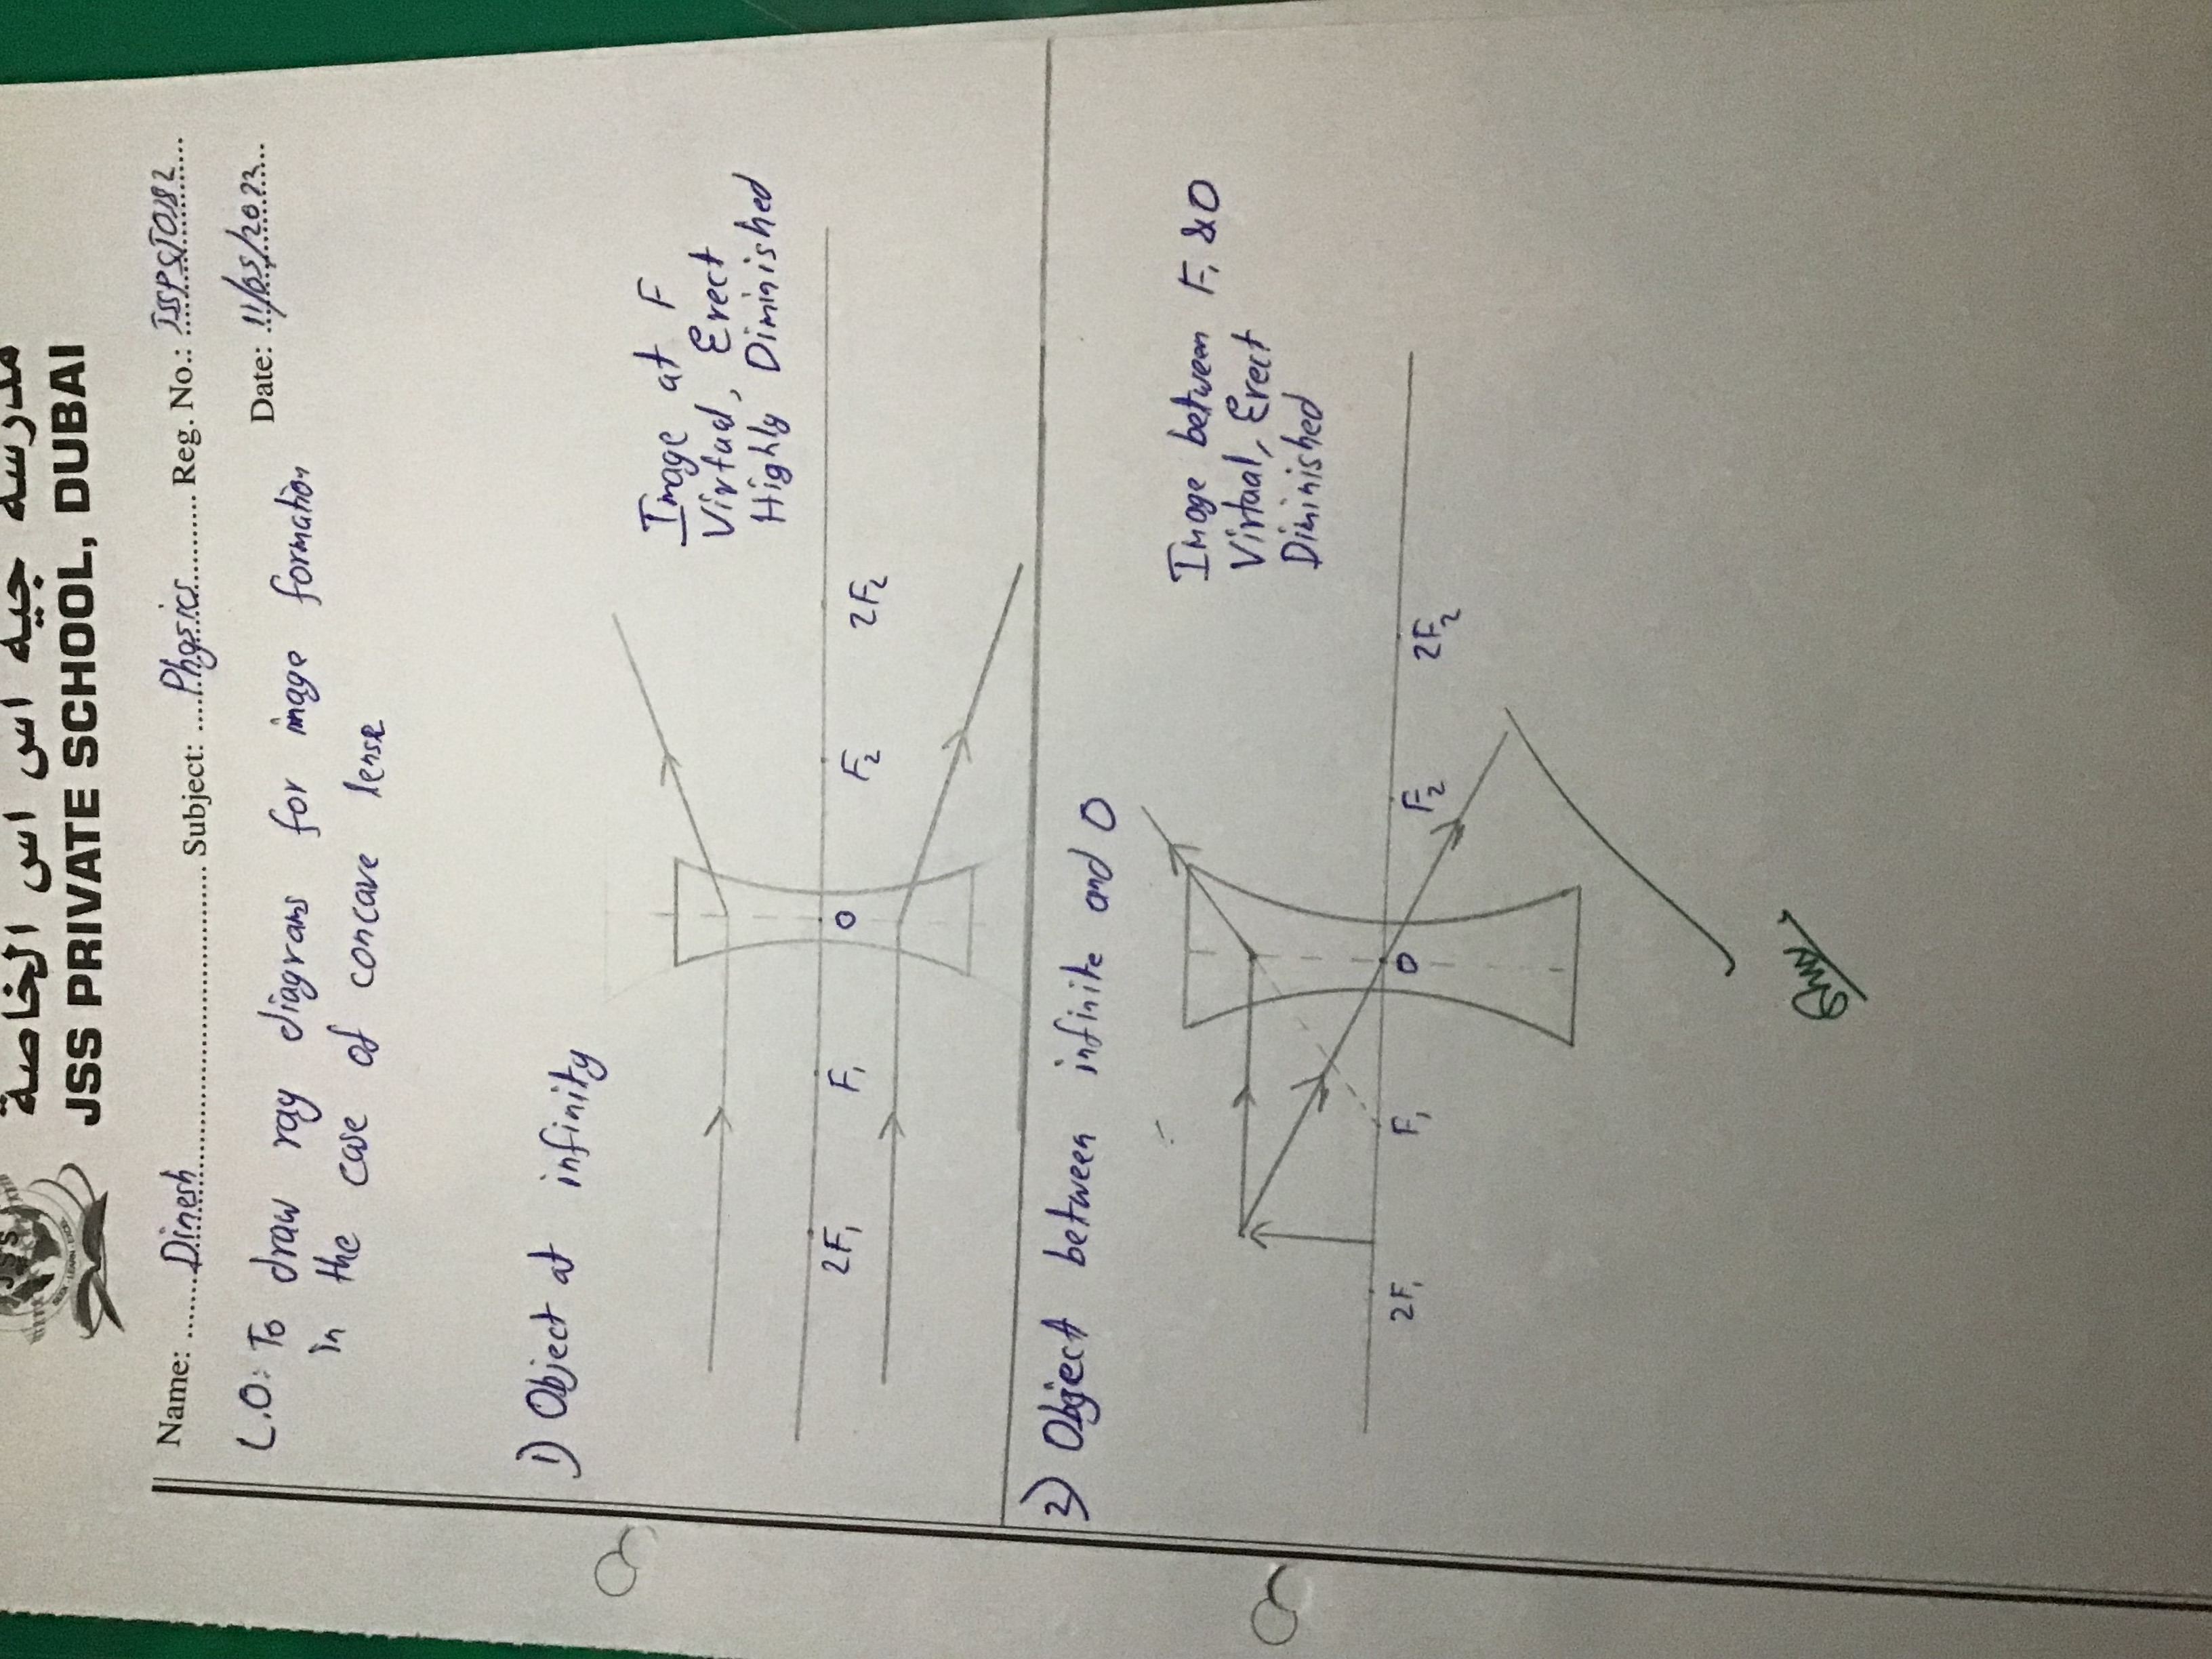 مدرسة جيه اس اس الخاصة
JSS
SEEK - LEARN - EXCEL
JSS PRIVATE SCHOOL, DUBAI
Name: Dinesh Subject: Physics Reg. No.: JSSPSJ0182
L.O: To draw ray diagrams for image formation
Date: 11/05/2023
in the case of concave lense
1) Object at infinity
Image at F
Virtual, Erect
Highly Diminished
2F₁ F₁ O F₂ 2F₂
2) Object between infinite and O
Image between F₁ & O
Virtual, Erect
Diminished
2F₁ F₁ O F₂ 2F₂